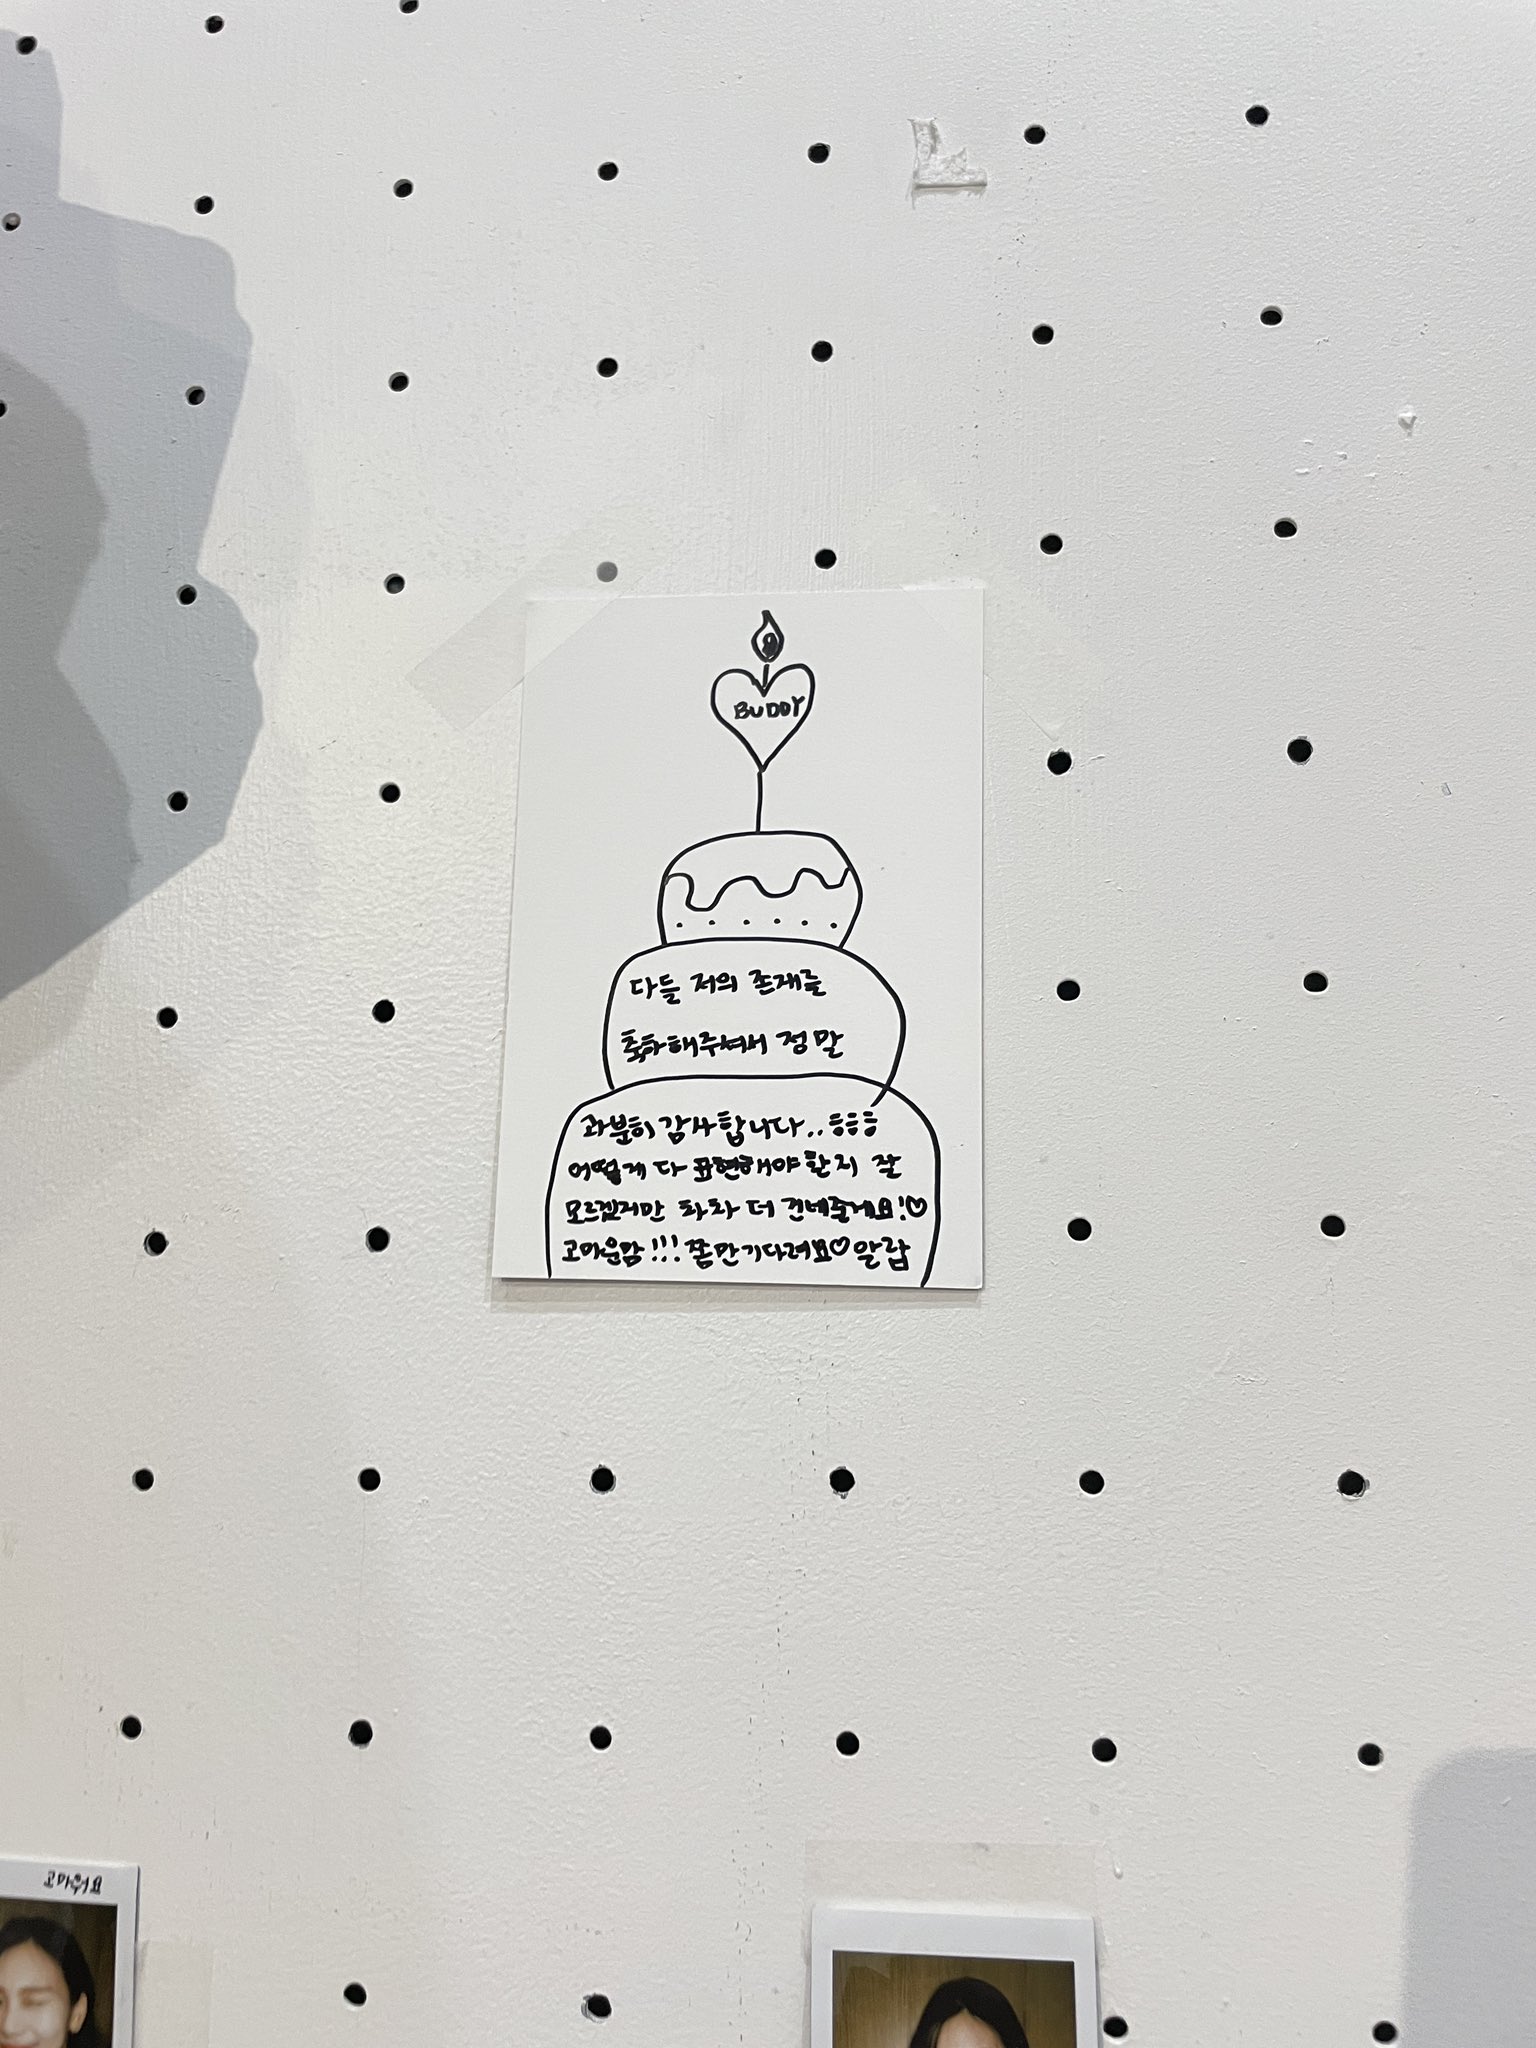 BUDDY
다들 저의 존재를
축하해주셔서 정말
과분히 감사합니다..흐흐흐
어떻게 다 표현해야 할지 잘
모르겠지만 차차 더 건네줄게요!♡
고마운맘!!! 쫌만기다려요♡ 알랍
고마워요